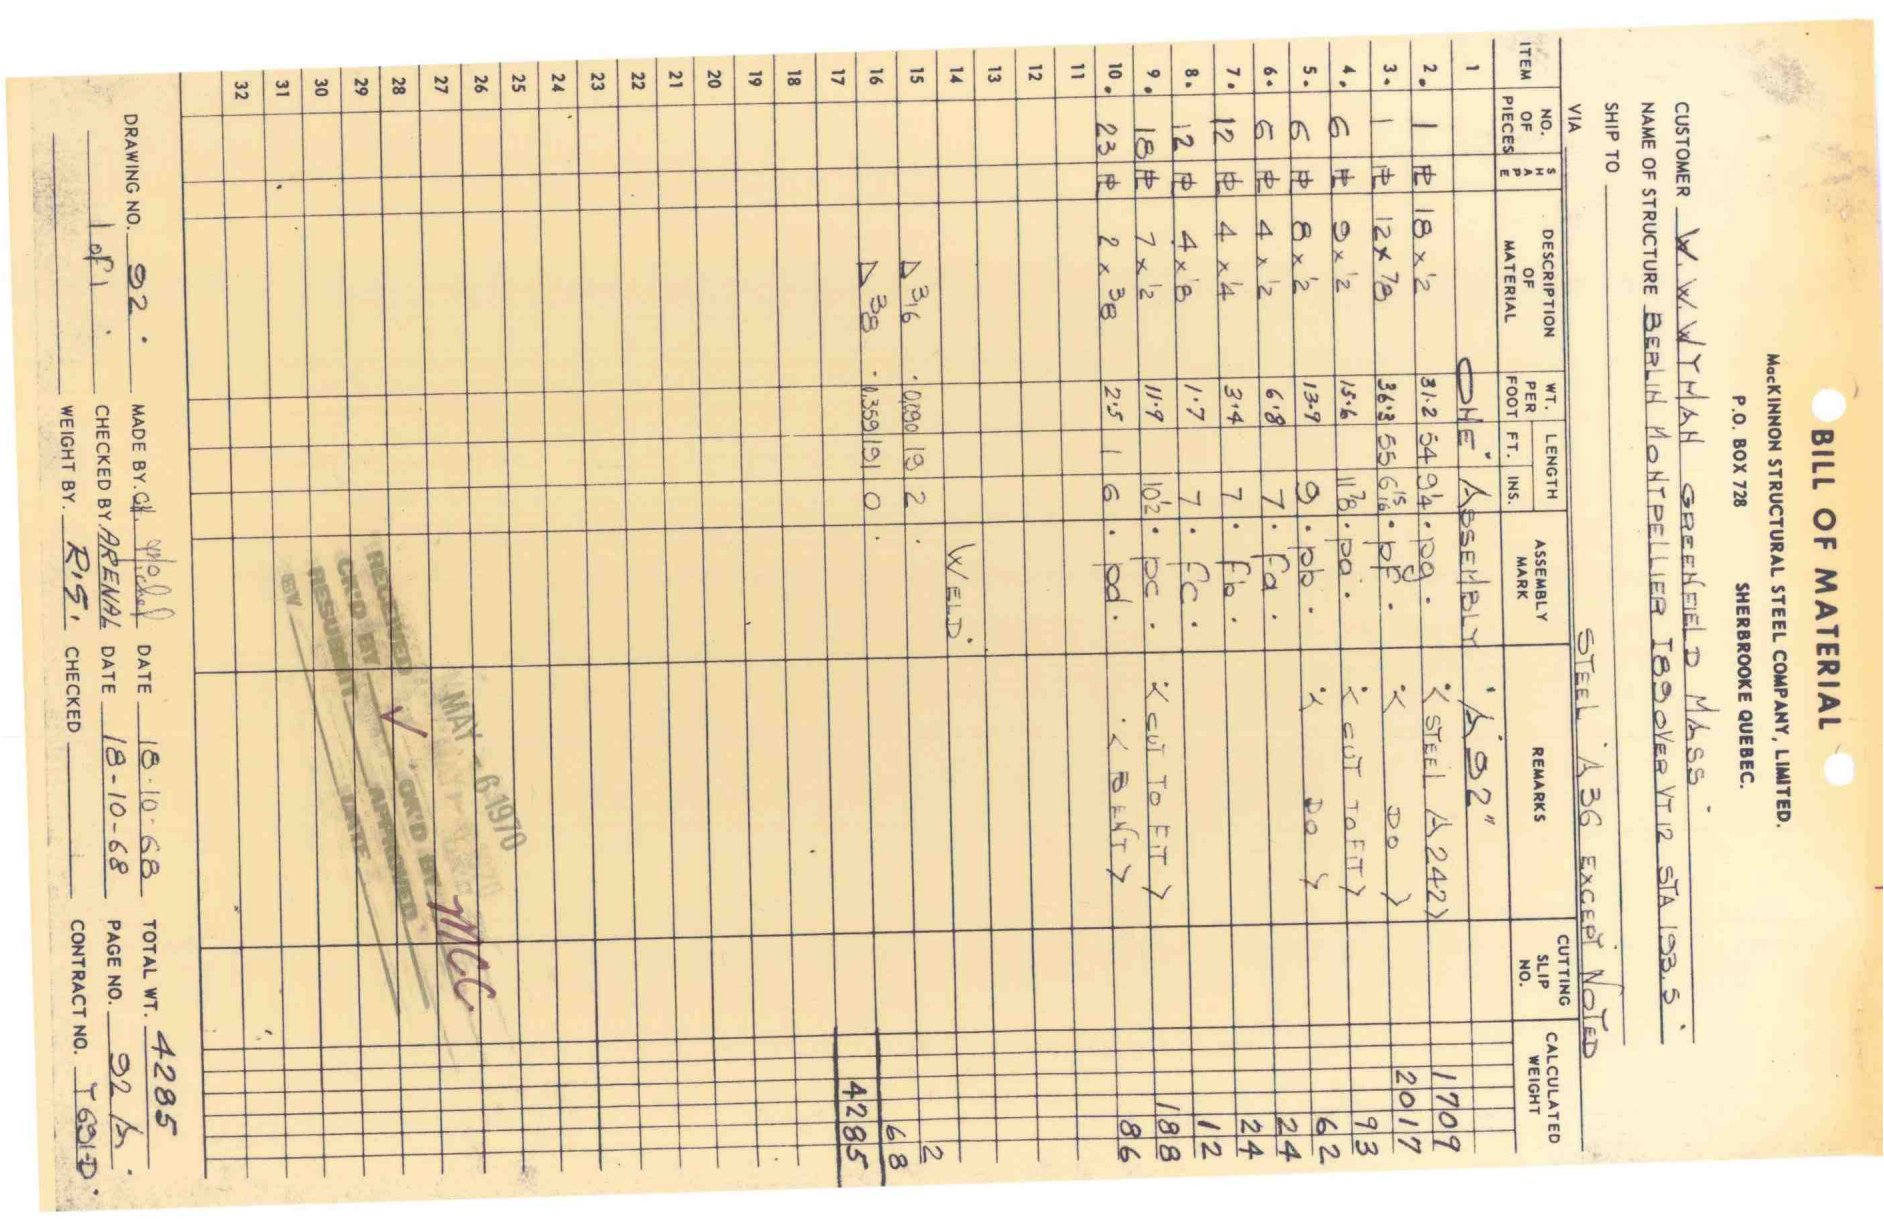 BILL OF MATERIAL
MacKINNON STRUCTURAL STEEL COMPANY, LIMITED.
P.O. BOX 728 SHERBROOKE QUEBEC.
CUSTOMER W.W.WYMAN GREENFIELD MASS.
NAME OF STRUCTURE BERLIN MONTPELLIER I89 OVER VT12 STA 193.5.
SHIP TO
VIA STEEL A36 EXCEPT NOTED
ITEM NO. OF PIECES SHAPE DESCRIPTION OF MATERIAL WT. PER FOOT LENGTH FT. INS. ASSEMBLY MARK REMARKS CUTTING SLIP NO. CALCULATED WEIGHT
1 ONE ASSEMBLY "A92"
2. 1 PL 18 x 1/2 31.2 54 9 1/4 . pg. < STEEL A242 > 1709
3. 1 PL 12 x 7/8 36.3 55 6 15/16 . pf. < DO > 2017
4. 6 PL 9 x 1/2 15.6 11 7/8 . pa. < CUT TO FIT > 93
5. 6 PL 8 x 1/2 13.9 9 . pb. < DO > 62
6. 6 PL 4 x 1/2 6.8 7 . fa. 24
7. 12 PL 4 x 1/4 3.4 7 . fb. 24
8. 12 PL 4 x 1/8 1.7 7 . fc. 12
9. 18 PL 7 x 1/2 11.9 10 1/2 . pc. < CUT TO FIT > 188
10. 23 PL 2 x 3/8 2.5 1 6 . pd. < BENT > 86
11
12
13
14 WELD.
15 △ 3/16 .0.090 19 2 . 2
16 △ 3/8 .0.359 191 0 . 68
17 4285
18
19
20
21
22
23
24
25
26
27
28
29
30
31
32
MAY - 6 1970
RECEIVED
CK'D BY OK'D BY MCC.
RESUBMIT ✓ APPROVED
BY DATE
DRAWING NO. 92. MADE BY. DATE 18-10-68 TOTAL WT. 4285
1 of 1 CHECKED BY ARENAL DATE 18-10-68 PAGE NO. 92 A.
WEIGHT BY. R.S. CHECKED CONTRACT NO. T691-D.